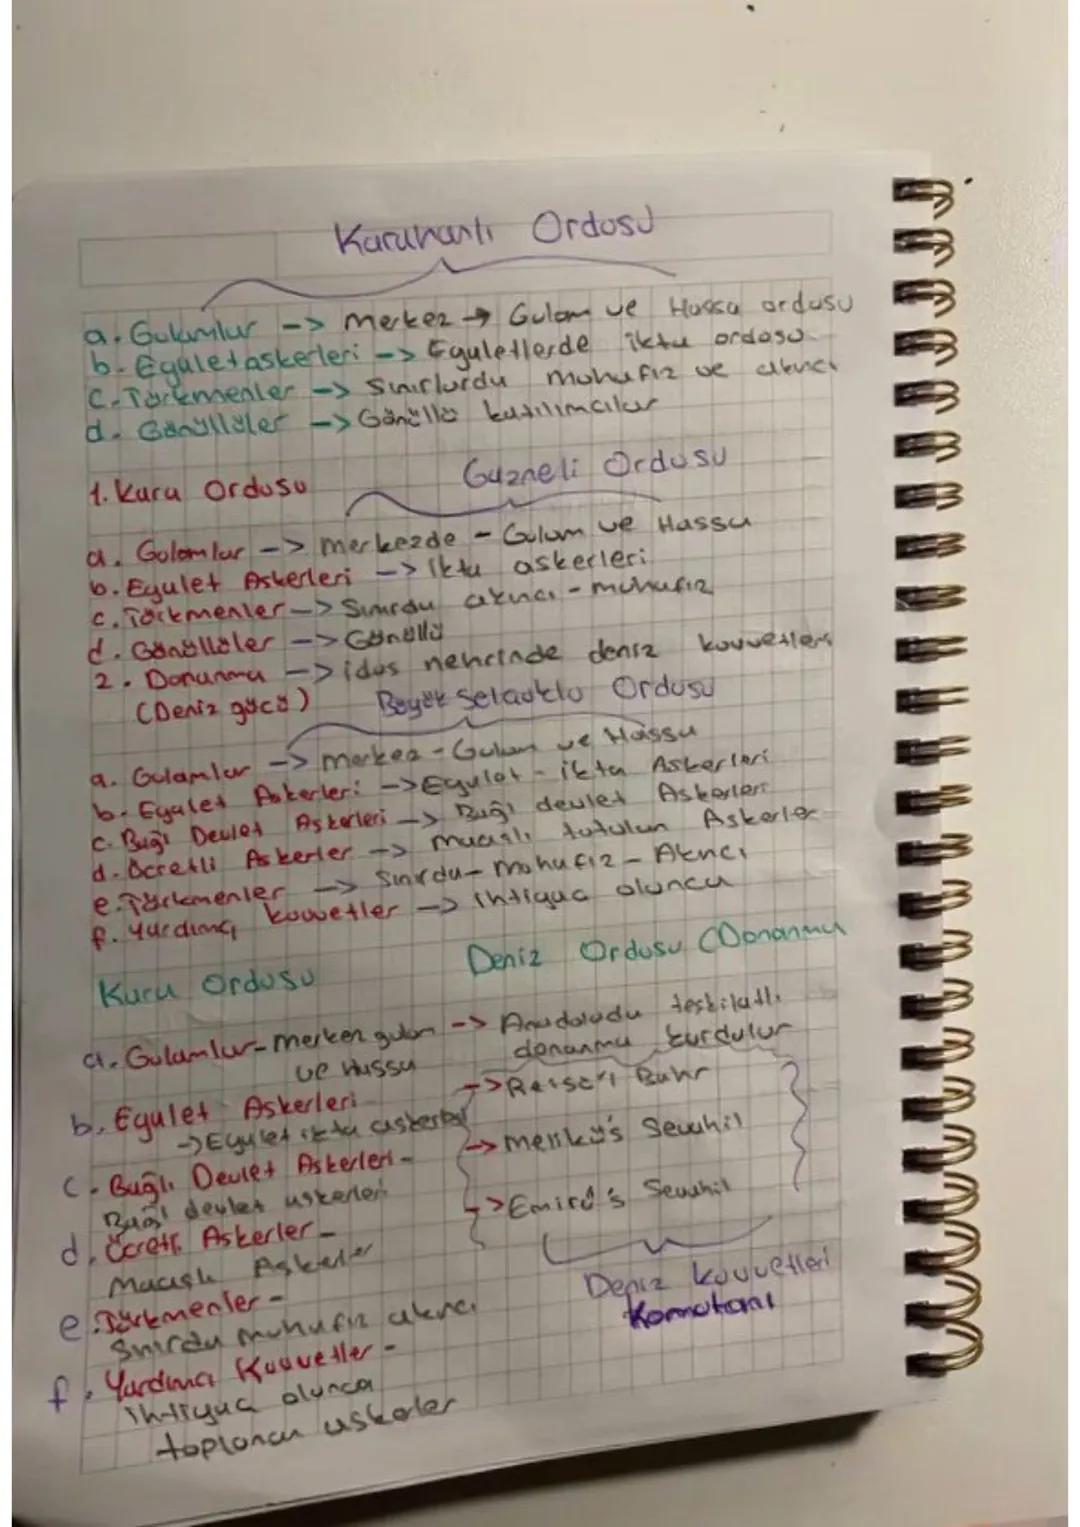 Karahanlı Ordusu
a. Gulamlar -> Merkez -> Gulam ve Hassa ordusu
b. Eyalet askerleri -> Eyaletlerde ikta ordusu
c. Türkmenler -> Sınırlarda muhafız ve akıncı
d. Gönüllüler -> Gönüllü katılımcılar
Gazneli Ordusu
1. Kara Ordusu
a. Gulamlar -> Merkezde - Gulam ve Hassa
b. Eyalet Askerleri -> ikta askerleri
c. Türkmenler -> Sınırda akıncı - muhafız
d. Gönüllüler -> Gönüllü
2. Donanma -> idus nehrinde deniz kuvvetleri
(Deniz gücü)
Büyük Selçuklu Ordusu
a. Gulamlar -> Merkez - Gulam ve Hassa
b. Eyalet Askerleri -> Eyalet - ikta Askerleri
c. Bağlı Devlet Askerleri -> Bağlı devlet Askerleri
d. Ücretli Askerler -> Maaşlı tutulan Askerler
e. Türkmenler -> Sınırda - Muhafız - Akıncı
f. Yardımcı kuvvetler -> ihtiyaç olunca
Deniz Ordusu (Donanma
Kara Ordusu
a. Gulamlar - Merkez gulam
ve Hassa
-> Anadoluda teşkilatlı
donanma kurdular
-> Reise'l Bahr
b. Eyalet Askerleri
-> Eyalet ikta askerleri
-> Melikü's Sevahil
c. Bağlı Devlet Askerleri -
Bağlı devlet askerleri
-> Emirü's Sevahil
d. Ücretli Askerler -
Maaşlı Askerler
Deniz kuvvetleri
Komutanı
e. Türkmenler -
Sınırda muhafız akıncı
f. Yardımcı Kuvvetler -
ihtiyaç olunca
toplanan askerler